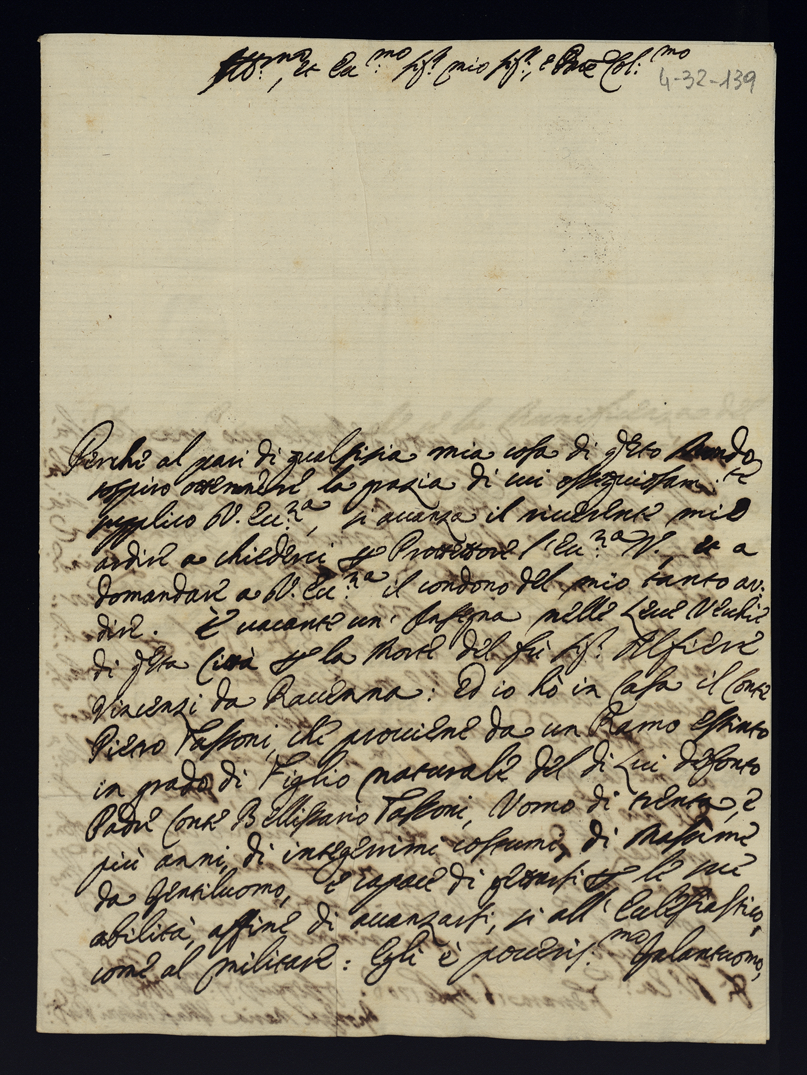 Ill:ma, et Ecc:mo Sig:r mio Sig:r, e Pron͠e Col:mo
4-32-139
Perche al pari di qualsisia mia cosa di q͠sto Mondo
sospiro ottenere la grazia di cui ossequiosam:te
supplico V. Ecc:za, si avanza il riverente mio
ardire a chiederci p Protettore l'Ecc:za V., et a
domandare a V. Ecc:za il condono del mio tanto ar:
dire. È vacante un' Insegna nelle Leve Vechie
di q͠sta Città p la Morte del fù Sig:r Alfiere
Vincenzi da Ravenna: Ed io hò in Casa il Conte
Pietro Tassoni, che proviene da un Ramo estinto
in grado di Figlio naturale del di Lui defonto
Padre Conte Bellisario Tassoni, Uomo di trenta, e
più anni, di integerrimi costumi, di Massime
da Gentiluomo, e capace di p le sue
abilità, affine di avanzarsi, si all' Eclesiastico,
come al militare: Egli è poveris:mo Galantuomo,